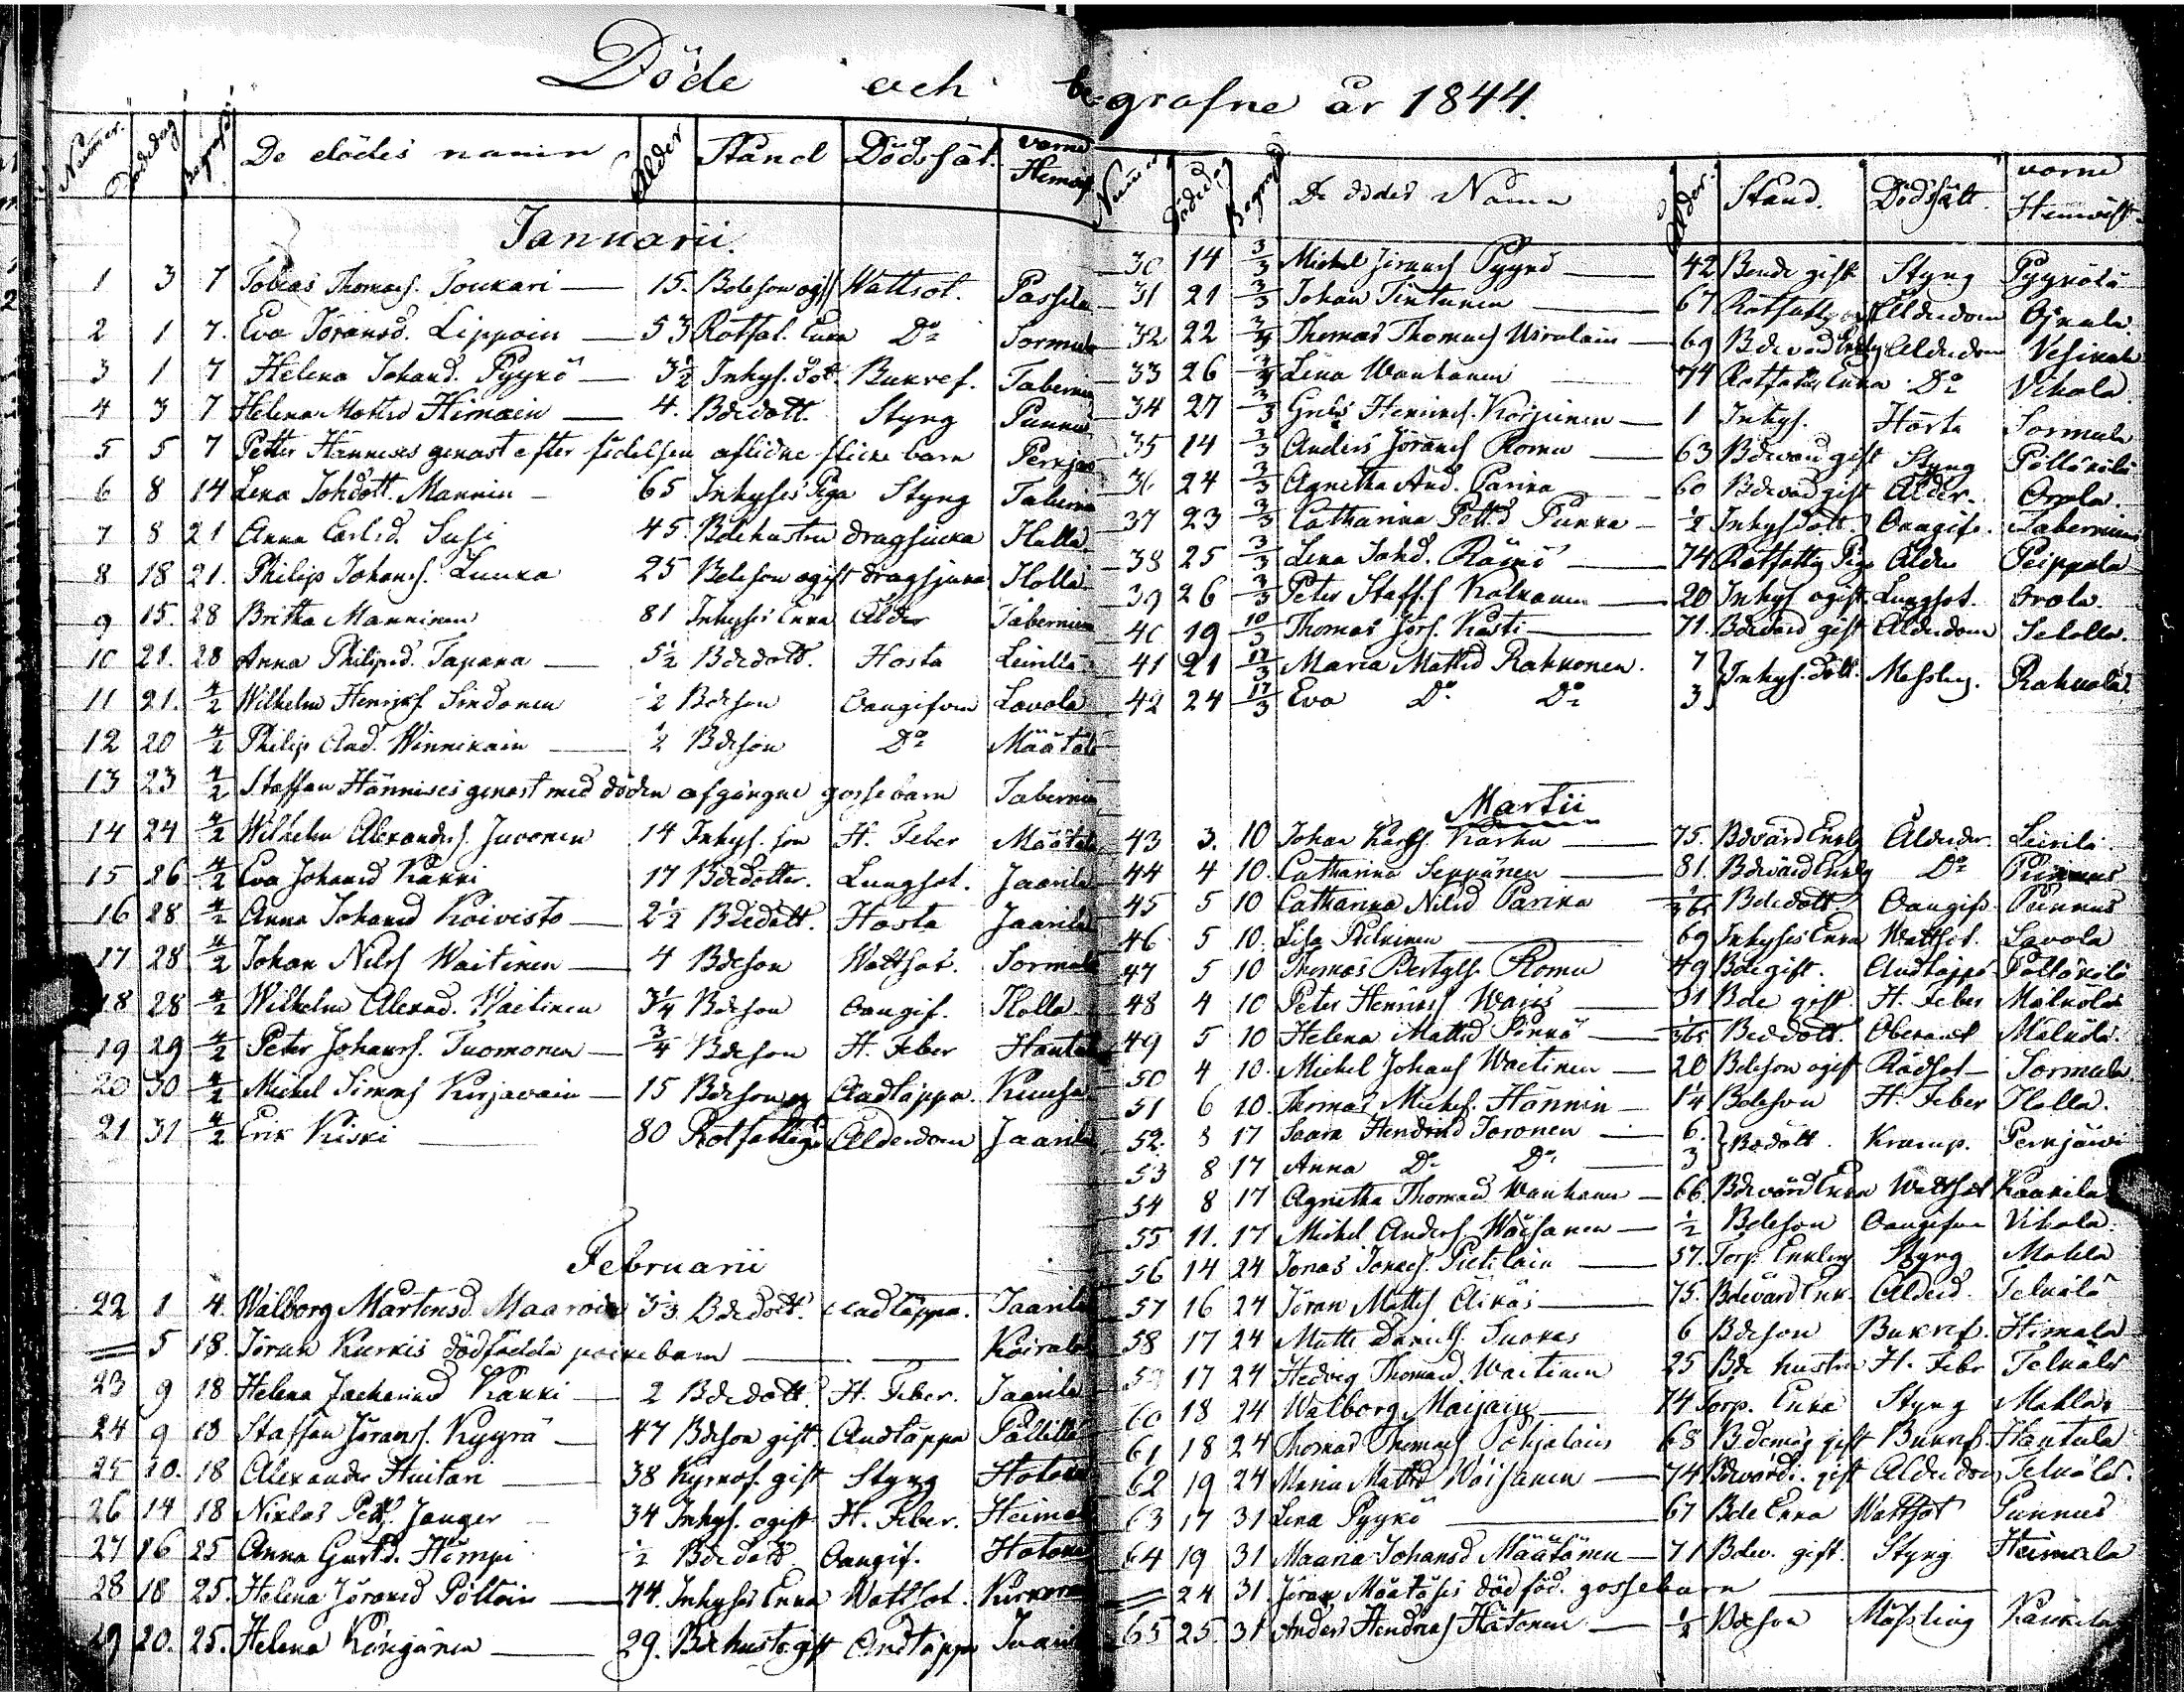 Döde och begrafne år 1844.
Nummer. Dödedag Begrafn. De dödes namn Ålder Stånd Dödssät. varné Hemvist
Januarii.
1 3 7 Tobias Thomass. Toukari — 15. Bdeson ogift Wattsot. Passila
2 1 7. Eva Jöransd. Lippoin — 53 Rotfat. Enka Do Sormula
3 1 7 Helena Johansd. Pyykö — 3½ Inhys. Dot. Bukref. Taberni
4 3 7 Helena Mattsd Himain — 4. Bdedott. Styng Punnus
5 5 7 Petter Hännises genast efter födelsen aflidne flicke barn Perkjär
6 8 14 Lena Johdott. Mannin — 65 Inhyses Piga Styng Taberni
7 8 21 Anna Carlsd. Susi 45 Bdehustru dragsiuka Hulla
8 18 21. Philip Johanss. Luuka 25 Bdeson ogift dragsjuka Holla
9 15. 28 Britha Manninen 81 Inhyses Enka Ålder Tabernin
10 21. 28 Anna Philipsd. Tapana — 5½ Bdedott. Hosta Leinilä
11 21. 4/2 Wilhelm Henrikss Sindonen ½ Bdeson Oangifven Lavola
12 20 4/2 Philip And. Winnikain — ½ Bdeson Do Määtälä
13 23 4/2 Staffan Hännises genast med döden afgångne gossebarn Tabernin
14 24 4/2 Wilhelm Alexanders. Juvonen 14 Inhys. son H. Feber Määtälä
15 26 4/2 Eva Johansd Kakki 17 Bdedotter. Lungsot. Jaarila
16 28 4/2 Anna Johansd Koivisto — 2½ Bdedott. Hosta Jaarila
17 28 4/2 Johan Nilss Waitinen — 4 Bdeson Wattsot. Sormula
18 28 4/2 Wilhelm Alexand. Waitinen 3¼ Bdeson Oangif. Holla
19 29 4/2 Peter Johanss. Tuomonen — ¾ Bdeson H. Feber Hantala
20 30 4/2 Michel Simons Kirjavain — 15 Bdeson og Andtäppa. Kuusa
21 31 4/2 Erik Kiski — 80 Rotfattig Ålderdom Jaarila
Februarii
22 1 4. Walborg Mårtensd. Maaroin 5⅓ Bdedott. Andtäppa. Jaarila
= 5 18. Jöran Kurkis dödfödda poikebarn — Koirala
23 9 18 Helena Zachariasd Kakki — 2 Bdedott. H. Feber. Jaarila
24 9 18 Staffan Jöranss. Kyyrä — 47 Bdeson gift. Andtäppa Pällilä
25 10. 18 Alexander Huitari — 38 Kyrkof. gift Styng Hotoka
26 14 18 Niklas Petts. Jauger 34 Inhys. ogift H. Feber. Heimala
27 16 25 Anna Gustd. Hömpi ½ Bdedott. Oangif. Hotoka
28 18 25. Helena Jöransd Pöltöin — 44. Inhyses Enka Wattsot. Kirkoran
29 20. 25. Helena Köngänen — 29. Bdehustr. gift Andtäppa Jaarila
Numer Dödedag Begrafd De dödes Namn Ålder. Stånd. Dödssätt. vorne Hemvist
30 14 3/3 Michel Jöranss Pyykö — 42 Bonde gift Styng Pyykölä
31 21 3/3 Johan Tintunen — 67 Rotfattig Ålderdom Ojnala
32 22 3/3 Thomas Thomass Usvolain — 69 Bdevärd Enkl Ålderdom Vesikala
33 26 3/3 Lena Wanhanen 74 Rotfattig Enka Do Vihola
34 27 3/3 Henricss. Korpinen — 1 Inhys. Hosta Sormula
35 14 3/3 Anders Jöranss Romu — 63 Bdevärd gift Styng Pöllökilä
36 24 3/3 Agnetha And. Parika 60 Bdevärd gift Ålder. Orola.
37 23 3/3 Catharina Pettd Pukka — ½ Inhysdott. Oangif. Tabernin
38 25 3/3 Lena Johd. Rämö 74 Rotfattig Pige Ålder Peippola
39 26 3/3 Peter Staffss Kalkonen — 20 Inhys ogift Lungsot. Orola
40 19 10/3 Thomas Jörs. Kasti — 71. Bdevärd gift Ålderdom Ilolla.
41 21 17/3 Maria Mattsd Rahkonen. 7 } Inhys. Dött. Messling. Rahkola
42 24 17/3 Eva Do Do 3
Martii
43 3. 10 Johan Karlss. Karhu — 75. Bdevärd Enkl Ålderdom. Leinilä.
44 4 10. Catharina Seppänen — 81. Bdevärd Enkl Do Punnus
45 5 10 Catharina Nilsd Parika 1/365 Bdedott. Oangif. Punnus
46 5 10. Lisa Pulkinen — 69 Inhyses Enka Wattsot. Lavola
47 5 10 Thomas Bertylss. Romu 49 Bde gift. Andtäppa Pöllökilä
48 4 10 Peter Henricss Wares — 31 Bde gift. H. Feber Mälkölä
49 5 10 Helena Mattsd Pirkä — 1/365 Bdedott. Obekant Mälkölä.
50 4 10. Michel Johanss Waitinen — 20 Bdeson ogift Rödsot — Sormula
51 6 10. Thomas Michels. Hännin — 1¼ Bdeson H. Feber Holla.
52. 8 17 Saara Hendricsd Toronen — 6. } Bdedött. Kramp. Perkjärvi
53 8 17 Anna Do Do — 3
54 8 17 Agnetha Thomasd Wanhanen — 66. Bdevärd Enka Wattsot Kaukila
55 11. 17 Michel Anderss Wäisänen — ½ Bdeson Oangifven Vihola.
56 14 24 Jonas Jonass. Pietiläin — 57. Torp. Enkling Styng Mahla
57 16 24 Jöran Matts Äikäs — 75. Bdevärd Enk. Ålderd. Telkälä
58 17 24 Matts Daniels. Suokas 6 Bdeson Bukref. Heimala
59 17 24 Hedvig Thomasd. Waitinen 25 Bde hustru H. Feber Telkälä
60 18 24 Walborg Maijain — 74 Torp. Enka Styng Mahla
61 18 24 Thomas Thomass Pohjalain 68 Bdemåg gift Bukref. Hantala
62 19 24 Maria Mattsd Wäisänen — 74 Bdevärdi. gift Ålderdom Telkälä.
63 17 31 Lena Pyykö — 67 Bde Enka Wattsot Punnus
64 19 31 Maaria Johansd Määtänen — 71 Bdev. gift. Styng Heimala
= 24 31. Jöran Määtäses död föd. gossebarn —
65 25. 31 Anders Hendricss Hätönen — ½ Bdeson Mässling Kaukila